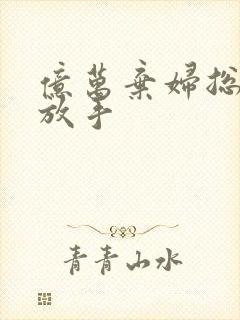 億萬棄婦總
放手
青青山水